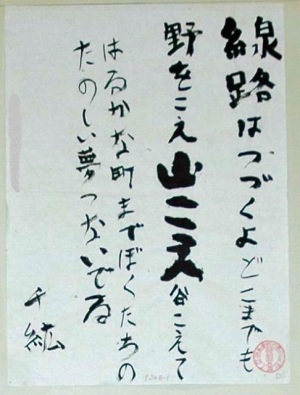 線路はつづくよどこまでも
野をこえ山こえ谷こえて
はるかな町までぼくたちの
たのしい夢つないでる
千紘